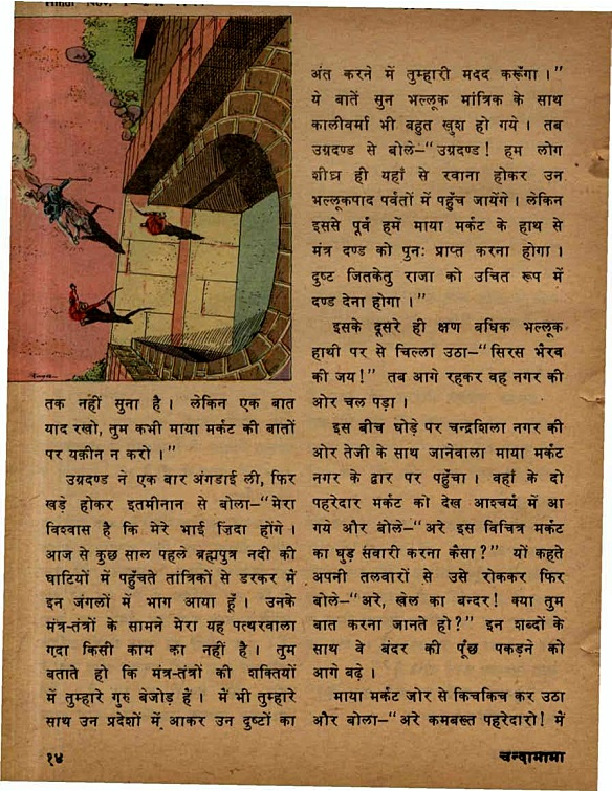 तक नहीं सुना है । लेकिन एक बात
याद रखो, तुम कभी माया मर्कट की बातों
पर यक़ीन न करो ।"
उग्रदण्ड ने एक बार अंगडाई ली, फिर
खड़े होकर इतमीनान से बोला-"मेरा
विश्वास है कि मेरे भाई ज़िंदा होंगे ।
आज से कुछ साल पहले ब्रह्मपुत्र नदी की
घाटियों में पहुँचते तांत्रिकों से डरकर में
इन जंगलों में भाग आया हूँ । उनके
मंत्र-तंत्रों के सामने मेरा यह पत्थरवाला
गदा किसी काम का नहीं है । तुम
बताते हो कि मंत्र-तंत्रों की शक्तियों
में तुम्हारे गुरु बेजोड़ हैं । में भी तुम्हारे
साथ उन प्रदेशों में आकर उन दुष्टों का
अंत करने में तुम्हारी मदद करूँगा ।"
ये बातें सुन भल्लूक मांत्रिक के साथ
कालीवर्मा भी बहुत खुश हो गये । तब
उग्रदण्ड से बोले-"उग्रदण्ड ! हम लोग
शीघ्र ही यहाँ से रवाना होकर उन
भल्लूकपाद पर्वतों में पहुँच जायेंगे । लेकिन
इससे पूर्व हमें माया मर्कट के हाथ से
मंत्र दण्ड को पुनः प्राप्त करना होगा ।
दुष्ट जितकेतु राजा को उचित रूप में
दण्ड देना होगा ।"
इसके दूसरे ही क्षण बधिक भल्लूक
हाथी पर से चिल्ला उठा-"सिरस भैरव
की जय !" तब आगे रहकर वह नगर की
ओर चल पड़ा ।
इस बीच घोड़े पर चन्द्रशिला नगर की
ओर तेजी के साथ जानेवाला माया मर्कट
नगर के द्वार पर पहुँचा । वहाँ के दो
पहरेदार मर्कट को देख आश्चर्य में आ
गये और बोले-"अरे इस विचित्र मर्कट
का घुड़ सवारी करना कैसा ?" यों कहते
अपनी तलवारों से उसे रोककर फिर
बोले-"अरे, खेल का बन्दर ! क्या तुम
बात करना जानते हो ?" इन शब्दों के
साथ वे बंदर की पूँछ पकड़ने को
आगे बढ़े ।
माया मर्कट जोर से किचकिच कर उठा
और बोला-"अरे कमबख्त पहरेदारो ! में
१४
चन्दामामा